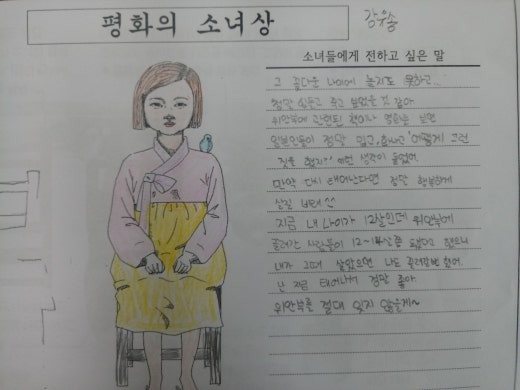 평화의 소녀상
강유승
소녀들에게 전하고 싶은 말
그 꽃다운 나이에 놀지도 못하고...
정말 힘들고 죽고 싶었을 것 같아
위안부에 관련된 책이나 영상을 보면
일본인들이 정말 밉고, 혼내고 '어떻게 그런
것을 했지?' 이런 생각이 들었어
만약 다시 태어난다면 정말 행복하게
살길 바래 ^^
지금 내 나이가 12살인데 위안부에
끌려간 사람들이 12~14살쯤 됐다고 했으니
내가 그때 살았으면 나도 끌려갈뻔 했어.
난 지금 태어나서 정말 좋아
위안부를 절대 잊지 않을게~